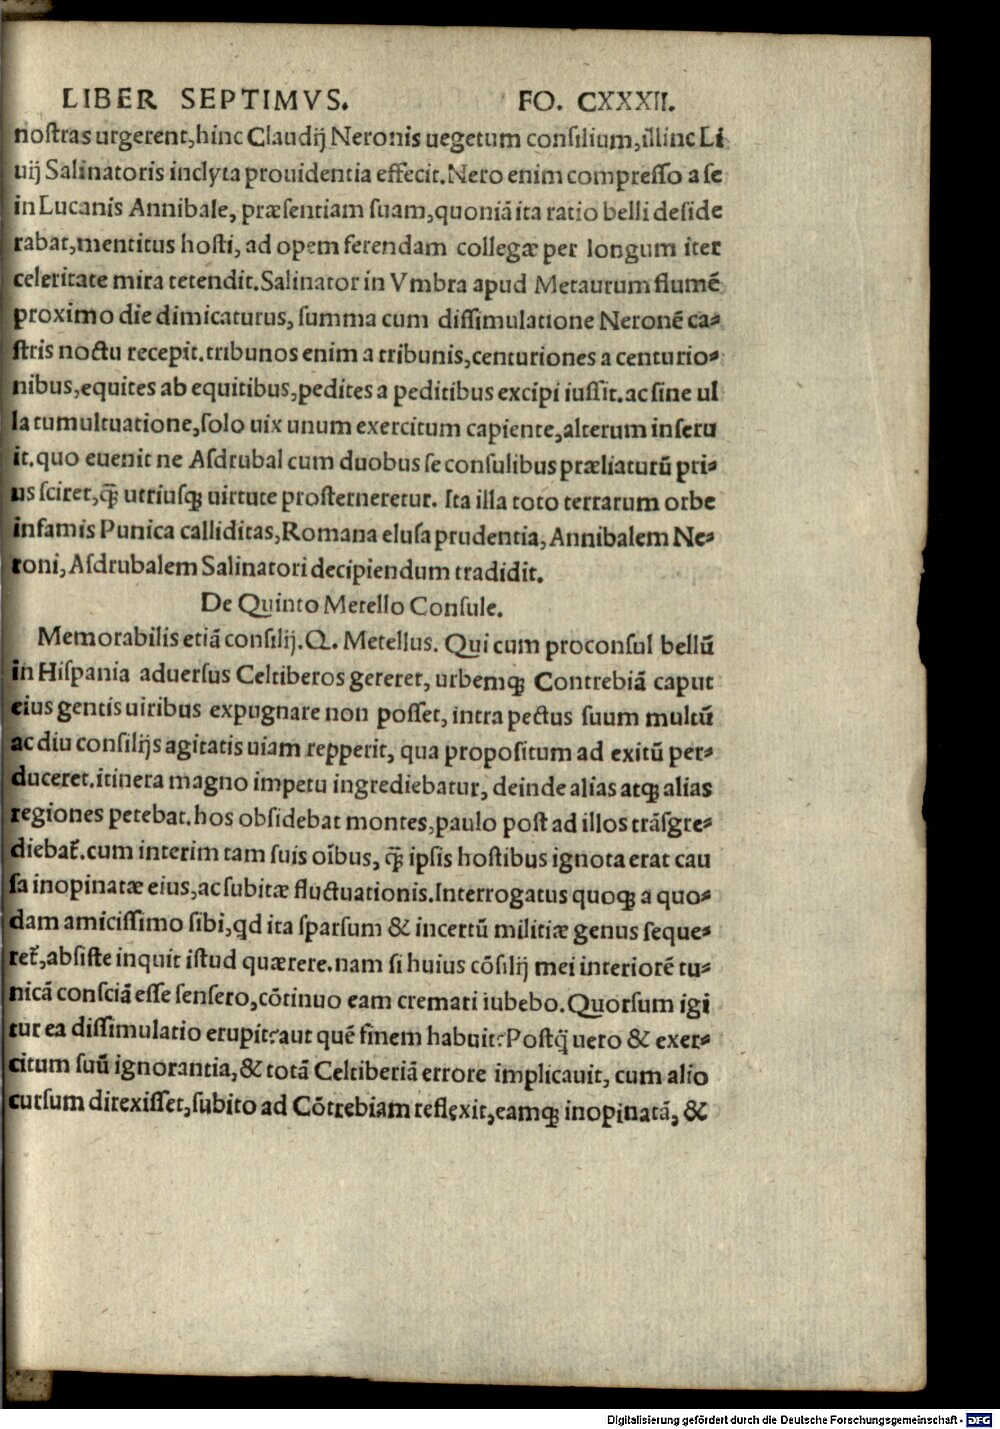 LIBER SEPTIMVS. FO. CXXXII.
nostras urgerent,hinc Claudij Neronis uegetum consilium,illinc Li
uij Salinatoris inclyta prouidentia effecit.Nero enim compresso a se
in Lucanis Annibale, præsentiam suam,quoniã ita ratio belli deside
rabat,mentitus hosti, ad opem ferendam collegæ per longum iter
celeritate mira tetendit.Salinator in Vmbra apud Metaurum flumẽ
proximo die dimicaturus, summa cum dissimulatione Neronẽ ca⸗
stris noctu recepit.tribunos enim a tribunis,centuriones a centurio⸗
nibus,equites ab equitibus,pedites a peditibus excipi iussit.ac sine ul
la tumultuatione,solo uix unum exercitum capiente,alterum inseru
it.quo euenit ne Asdrubal cum duobus se consulibus præliaturũ pri⸗
us sciret,q̃ utriusq; uirtute prosterneretur. Ita illa toto terrarum orbe
infamis Punica calliditas,Romana elusa prudentia, Annibalem Ne⸗
roni, Asdrubalem Salinatori decipiendum tradidit.
De Quinto Metello Consule.
Memorabilis etiã consilij.Q. Metellus. Qui cum proconsul bellũ
in Hispania aduersus Celtiberos gereret, urbemq; Contrebiã caput
eius gentis uiribus expugnare non posset, intra pectus suum multũ
ac diu consilijs agitatis uiam repperit, qua propositum ad exitũ per⸗
duceret.itinera magno impetu ingrediebatur, deinde alias atq; alias
regiones petebat.hos obsidebat montes,paulo post ad illos trãsgre⸗
diebat᷑.cum interim tam suis oĩbus, q̃ ipsis hostibus ignota erat cau
sa inopinatæ eius, ac subitæ fluctuationis.Interrogatus quoq; a quo⸗
dam amicissimo sibi,qd ita sparsum & incertũ militiæ genus seque⸗
ret᷑,absiste inquit istud quærere.nam si huius cõsilij mei interiorẽ tu⸗
nicã consciã esse sensero,cõtinuo eam cremari iubebo.Quorsum igi
tur ea dissimulatio erupit?aut quẽ finem habuit?Postq̃ uero & exer⸗
citum suũ ignorantia,& totã Celtiberiã errore implicauit, cum alio
cursum direxisset,subito ad Cõtrebiam reflexit,eamq; inopinatã, &
Digitalisierung gefördert durch die Deutsche Forschungsgemeinschaft - DFG